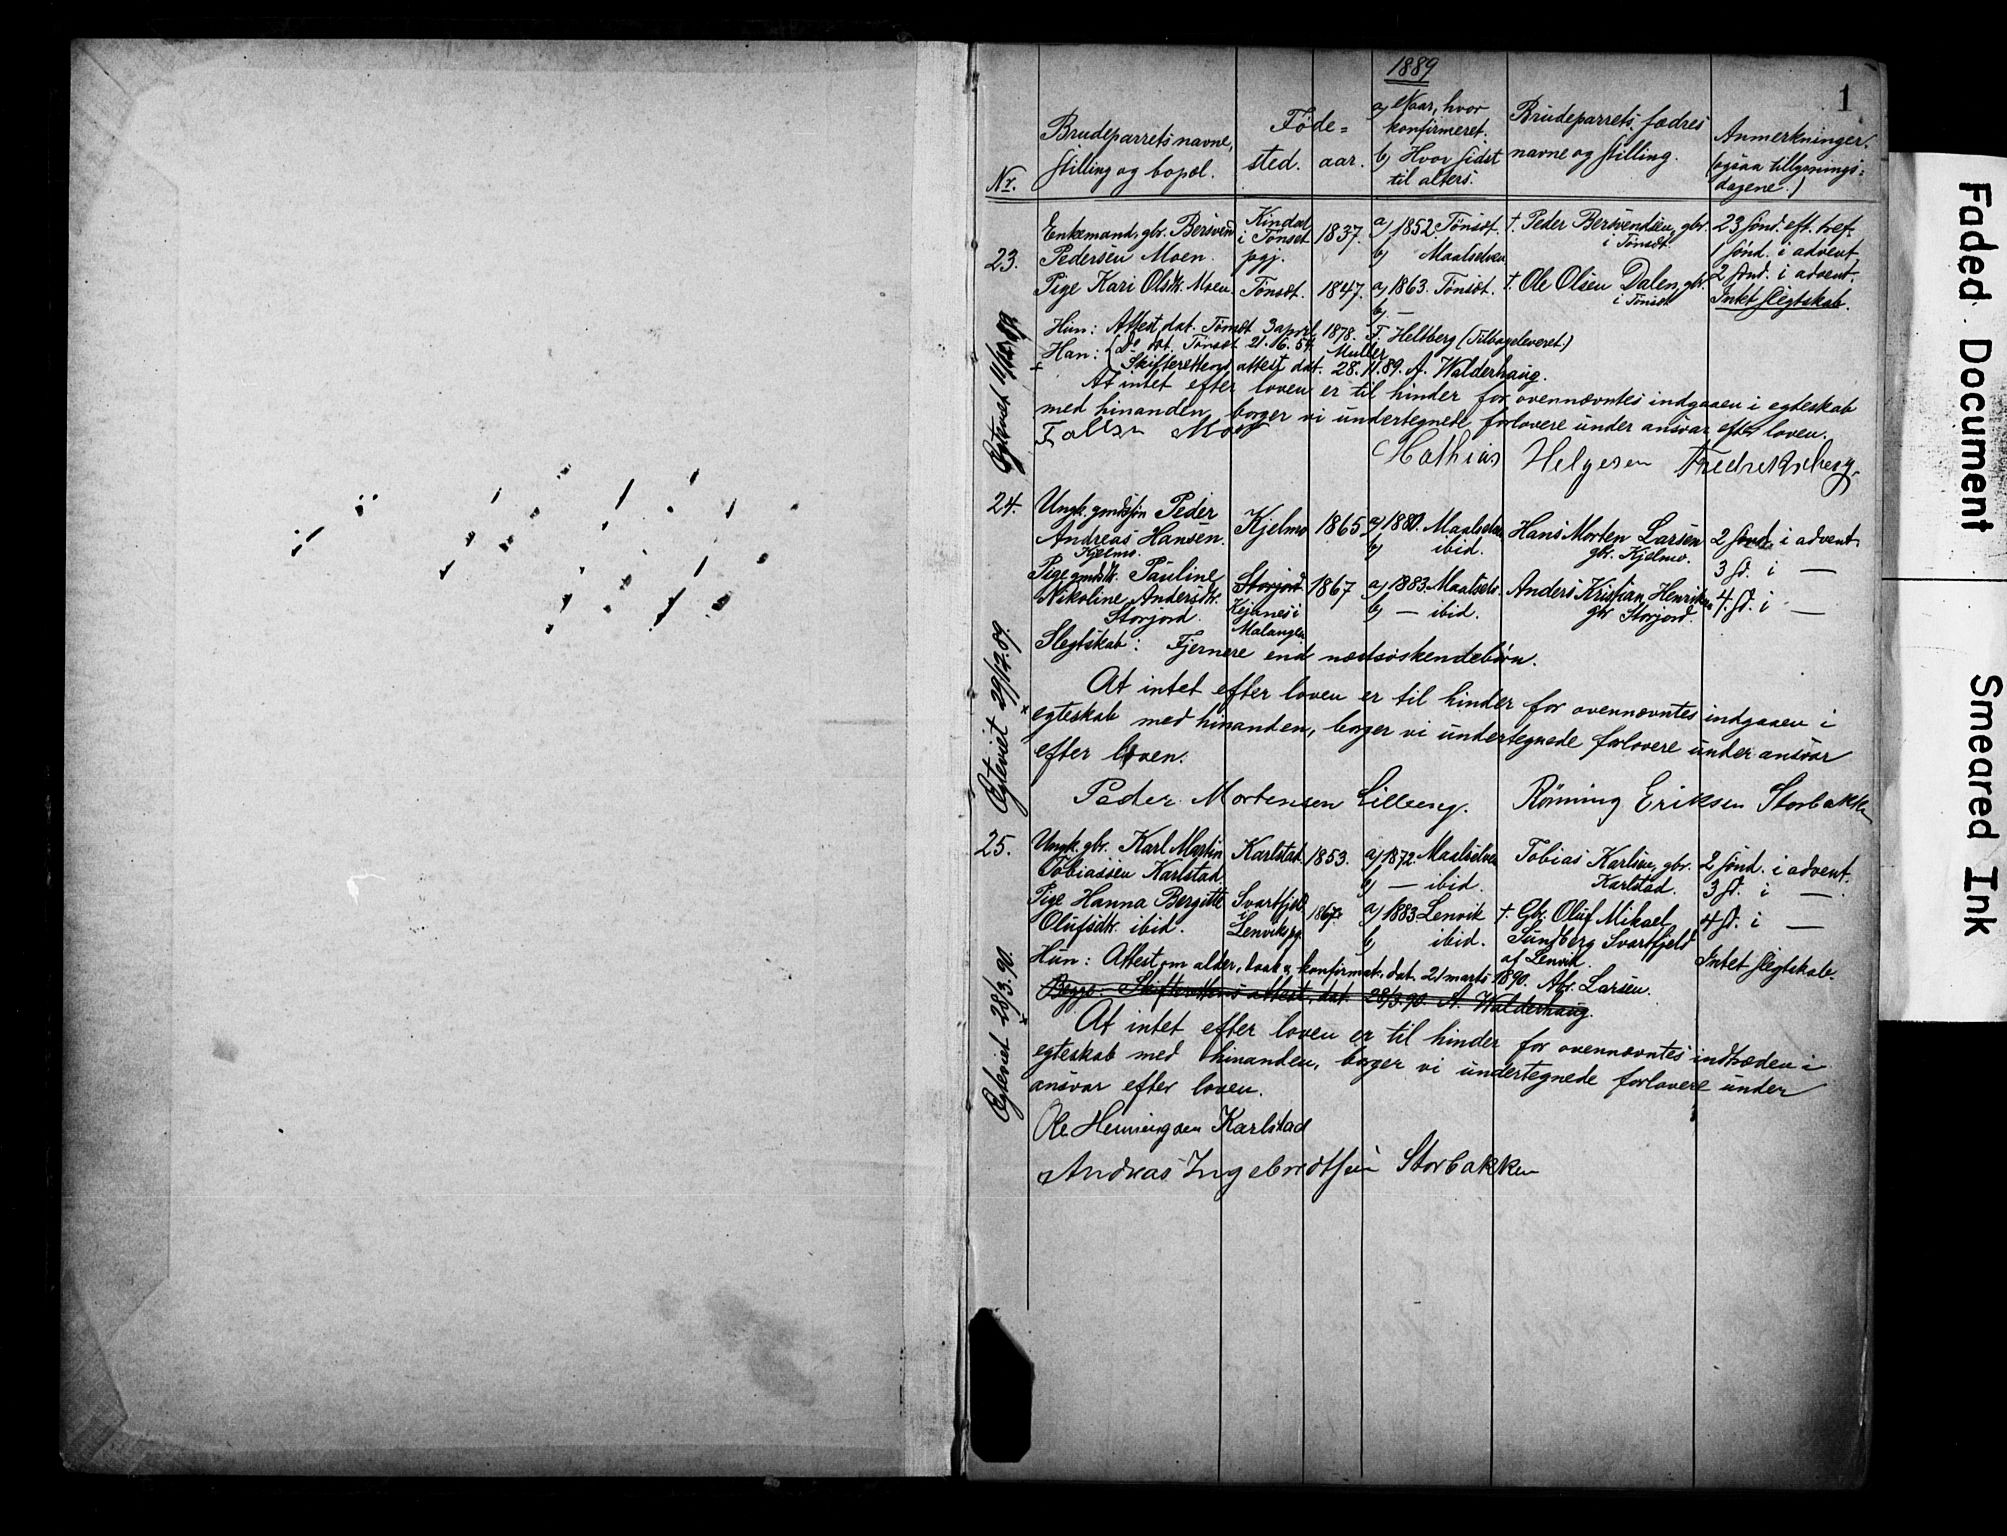 1889
1
Nr.
Brudeparrets navne,
stilling og bopæl.
Føde=
sted.
aar.
a) Naar, hvor
konfirmeret.
b) Hvor sidst
til alters.
Brudeparrets fædres
navne og stilling.
Anmerkninger.
(ogsaa tillysnings=
dagene.)
23.
Enkemand, gbr. Bersvend
Pedersen Moen.
Kindal
i Tønset
pgj.
1837.
a) 1852. Tønset.
b) Maalselven
† Peder Bersvendsen, gbr.
i Tønset.
23 sønd. eft. tref.
1 sønd. i advent
2 sønd. i advent.
Intet slegtskab.
Pige Kari Olsdtr. Moen
Tønset.
1847.
a) 1863. Tønset.
b) —
† Ole Olsen Dalen, gbr.
i Tønset
Hun: Attest dat. Tønset 3 april 1878. F. Heltberg (Tilbageleveret.)
Han: Do dat. Tønset 21.16.54. Muller
Skifterettens attest dat. 28.11.89. A. Walderhaug.
At intet efter loven er til hinder for ovennævntes indgaaen i egteskab
med hinanden, borger vi undertegnede forlovere under ansvar efter loven.
Moen
Mathias Helgesen Fredriksberg.
Egteviet 11/12.89.
24.
Ungk. gmdsøn Peder
Andreas Hansen.
Kjelmo.
Kjelmo
1865
a) 1880. Maalselven
b) ibid.
Hans Morten Larsen
gbr. Kjelmo.
2 sønd. i advent.
3 sd. i —
4. sd. i —
Pige gmdtr. Pauline
Nikoline Andersdtr.
Storjord.
Storjord
i
Malangen
1867
a) 1883. Maalselv.
b) — ibid.
Anders Kristian Henriksen
gbr. Storjord.
Slegtskab: Fjernere end næstsøskendebørn.
At intet efter loven er til hinder for ovennævntes indgaaen i
egteskab med hinanden, borger vi undertegnede forlovere under ansvar
efter loven.
Peder Mortensen Lilleeng. Rønning Eriksen Storbakken
Egteviet 29/12.89.
25.
Ungk. gbr. Karl Martin
Tobiassen Karlstad
Karlstad.
1853.
a) 1872 Maalselven
b) — ibid.
Tobias Karlsen, gbr.
Karlstad.
2 sønd. i advent.
3 sd. i —
4 sd. i —
Intet slegtskab.
Pige Hanna Bergitte
Olufsdtr. ibid.
Svartfjeld
i
Lenvik pg.
1867
a) 1883 Lenvik
b) ibid.
† Gbr. Oluf Mikael
Sundberg Svartfjeld
af Lenvik.
Hun: Attest om alder, daab & konfirmat. dat. 21 marts 1890. Abr. Larsen.
Begge: Skifterettens attest, dat. 28/3.90. A. Walderhaug.
At intet efter loven er til hinder for ovennævntes indtræden i
egteskab med hinanden, borger vi undertegnede forlovere under
ansvar efter loven.
Ole Henningsen Karlstad
Andreas Ingebredtsen Storbakken
Egteviet 28/3.90.
Faded Document
Smeared Ink